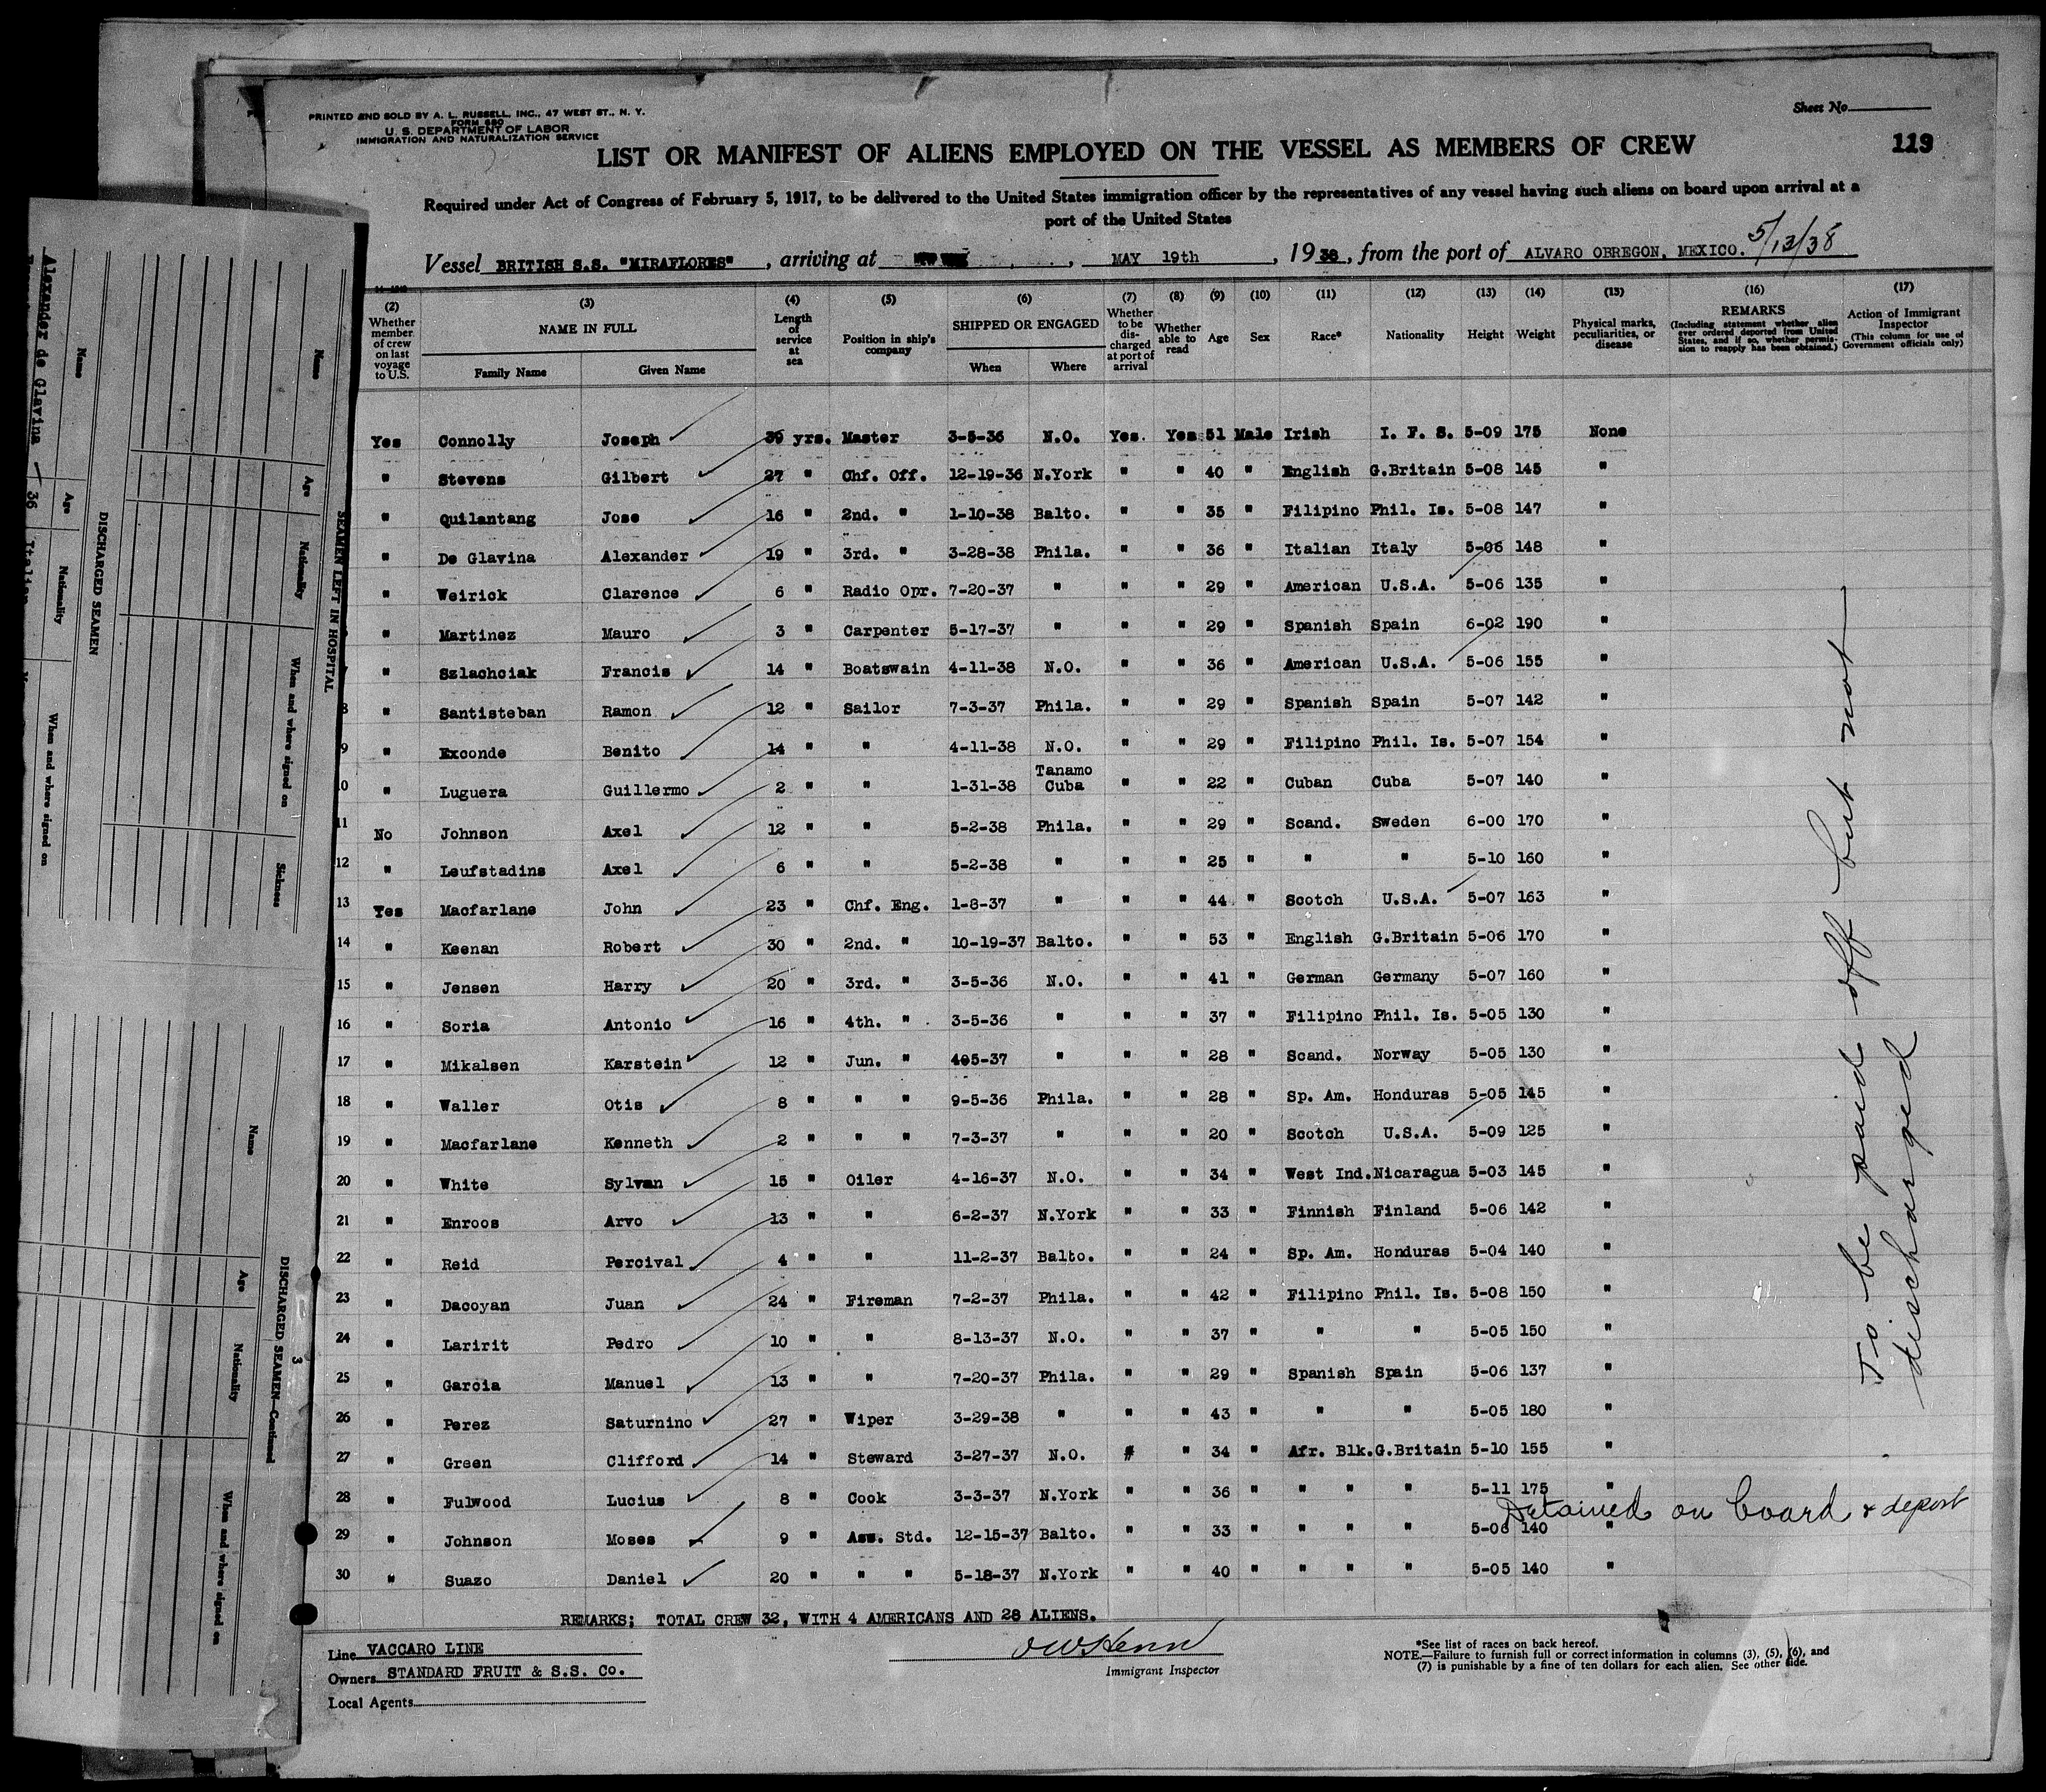 PRINTED AND SOLD BY A. L. RUSSELL, INC., 47 WEST ST., N. Y.
FORM 680
U. S. DEPARTMENT OF LABOR
IMMIGRATION AND NATURALIZATION SERVICE
Sheet No.
LIST OR MANIFEST OF ALIENS EMPLOYED ON THE VESSEL AS MEMBERS OF CREW
119
Required under Act of Congress of February 5, 1917, to be delivered to the United States immigration officer by the representatives of any vessel having such aliens on board upon arrival at a
port of the United States
Vessel BRITISH S.S. "MIRAFLORES", arriving at , MAY 19th, 1938, from the port of ALVARO OBREGON, MEXICO. 5/12/38
(2) (3) (4) (5) (6) (7) (8) (9) (10) (11) (12) (13) (14) (15) (16) (17)
Whether member of crew on last voyage to U.S.
NAME IN FULL
Family Name
Given Name
Length of service at sea
Position in ship's company
SHIPPED OR ENGAGED
When
Where
Whether to be discharged at port of arrival
Whether able to read
Age
Sex
Race*
Nationality
Height
Weight
Physical marks, peculiarities, or disease
REMARKS
(Including statement whether alien ever ordered deported from United States, and if so, whether permission to reapply has been obtained.)
Action of Immigrant Inspector
(This column for use of Government officials only)
Yes Connolly Joseph 39 yrs. Master 3-5-36 N.O. Yes. Yes 51 Male Irish I. F. S. 5-09 175 None
" Stevens Gilbert 27 " Chf. Off. 12-19-36 N.York " " 40 " English G.Britain 5-08 145 "
" Quilantang Jose 16 " 2nd. " 1-10-38 Balto. " " 35 " Filipino Phil. Is. 5-08 147 "
" De Glavina Alexander 19 " 3rd. " 3-28-38 Phila. " " 36 " Italian Italy 5-06 148 "
" Weirick Clarence 6 " Radio Opr. 7-20-37 " " " 29 " American U.S.A. 5-06 135 "
" Martinez Mauro 3 " Carpenter 5-17-37 " " " 29 " Spanish Spain 6-02 190 "
" Szlachciak Francis 14 " Boatswain 4-11-38 N.O. " " 36 " American U.S.A. 5-06 155 "
8 " Santisteban Ramon 12 " Sailor 7-3-37 Phila. " " 29 " Spanish Spain 5-07 142 "
9 " Exconde Benito 14 " " 4-11-38 N.O. " " 29 " Filipino Phil. Is. 5-07 154 "
10 " Luguera Guillermo 2 " " 1-31-38 Tanamo Cuba " " 22 " Cuban Cuba 5-07 140 "
11 No Johnson Axel 12 " " 5-2-38 Phila. " " 29 " Scand. Sweden 6-00 170 "
12 " Leufstadins Axel 6 " " 5-2-38 " " " 25 " " " 5-10 160 "
13 Yes Macfarlane John 23 " Chf. Eng. 1-8-37 " " " 44 " Scotch U.S.A. 5-07 163 "
14 " Keenan Robert 30 " 2nd. " 10-19-37 Balto. " " 53 " English G.Britain 5-06 170 "
15 " Jensen Harry 20 " 3rd. " 3-5-36 N.O. " " 41 " German Germany 5-07 160 "
16 " Soria Antonio 16 " 4th. " 3-5-36 " " " 37 " Filipino Phil. Is. 5-05 130 "
17 " Mikalsen Karstein 12 " Jun. " 405-37 " " " 28 " Scand. Norway 5-05 130 "
18 " Waller Otis 8 " " " 9-5-36 Phila. " " 28 " Sp. Am. Honduras 5-05 145 "
19 " Macfarlane Kenneth 2 " " " 7-3-37 " " " 20 " Scotch U.S.A. 5-09 125 "
20 " White Sylvan 15 " Oiler 4-16-37 N.O. " " 34 " West Ind. Nicaragua 5-03 145 "
21 " Enroos Arvo 13 " " 6-2-37 N.York " " 33 " Finnish Finland 5-06 142 "
22 " Reid Percival 4 " " 11-2-37 Balto. " " 24 " Sp. Am. Honduras 5-04 140 "
23 " Dacoyan Juan 24 " Fireman 7-2-37 Phila. " " 42 " Filipino Phil. Is. 5-08 150 "
24 " Laririt Pedro 10 " " 8-13-37 N.O. " " 37 " " " 5-05 150 "
25 " Garcia Manuel 13 " " 7-20-37 Phila. " " 29 " Spanish Spain 5-06 137 "
26 " Perez Saturnino 27 " Wiper 3-29-38 " " " 43 " " " 5-05 180 "
27 " Green Clifford 14 " Steward 3-27-37 N.O. # " 34 " Afr. Blk. G.Britain 5-10 155 "
28 " Fulwood Lucius 8 " Cook 3-3-37 N.York " " 36 " " " " 5-11 175 "
29 " Johnson Moses 9 " Ass. Std. 12-15-37 Balto. " " 33 " " " " 5-06 140 "
30 " Suazo Daniel 20 " " " 5-18-37 N.York " " 40 " " " " 5-05 140 "
To be paid off but not
discharged
Detained on board & deport
REMARKS; TOTAL CREW 32, WITH 4 AMERICANS AND 28 ALIENS.
Line VACCARO LINE
Owners STANDARD FRUIT & S.S. Co.
Local Agents
Immigrant Inspector
*See list of races on back hereof.
NOTE.—Failure to furnish full or correct information in columns (3), (5), (6), and
(7) is punishable by a fine of ten dollars for each alien. See other side.
SEAMEN LEFT IN HOSPITAL
Name
Age
Nationality
When and where signed on
Sickness
DISCHARGED SEAMEN
Name
Age
Nationality
When and where signed on
Alexander de Glavina — 36
DISCHARGED SEAMEN—Continued
3
Name
Age
Nationality
When and where signed on